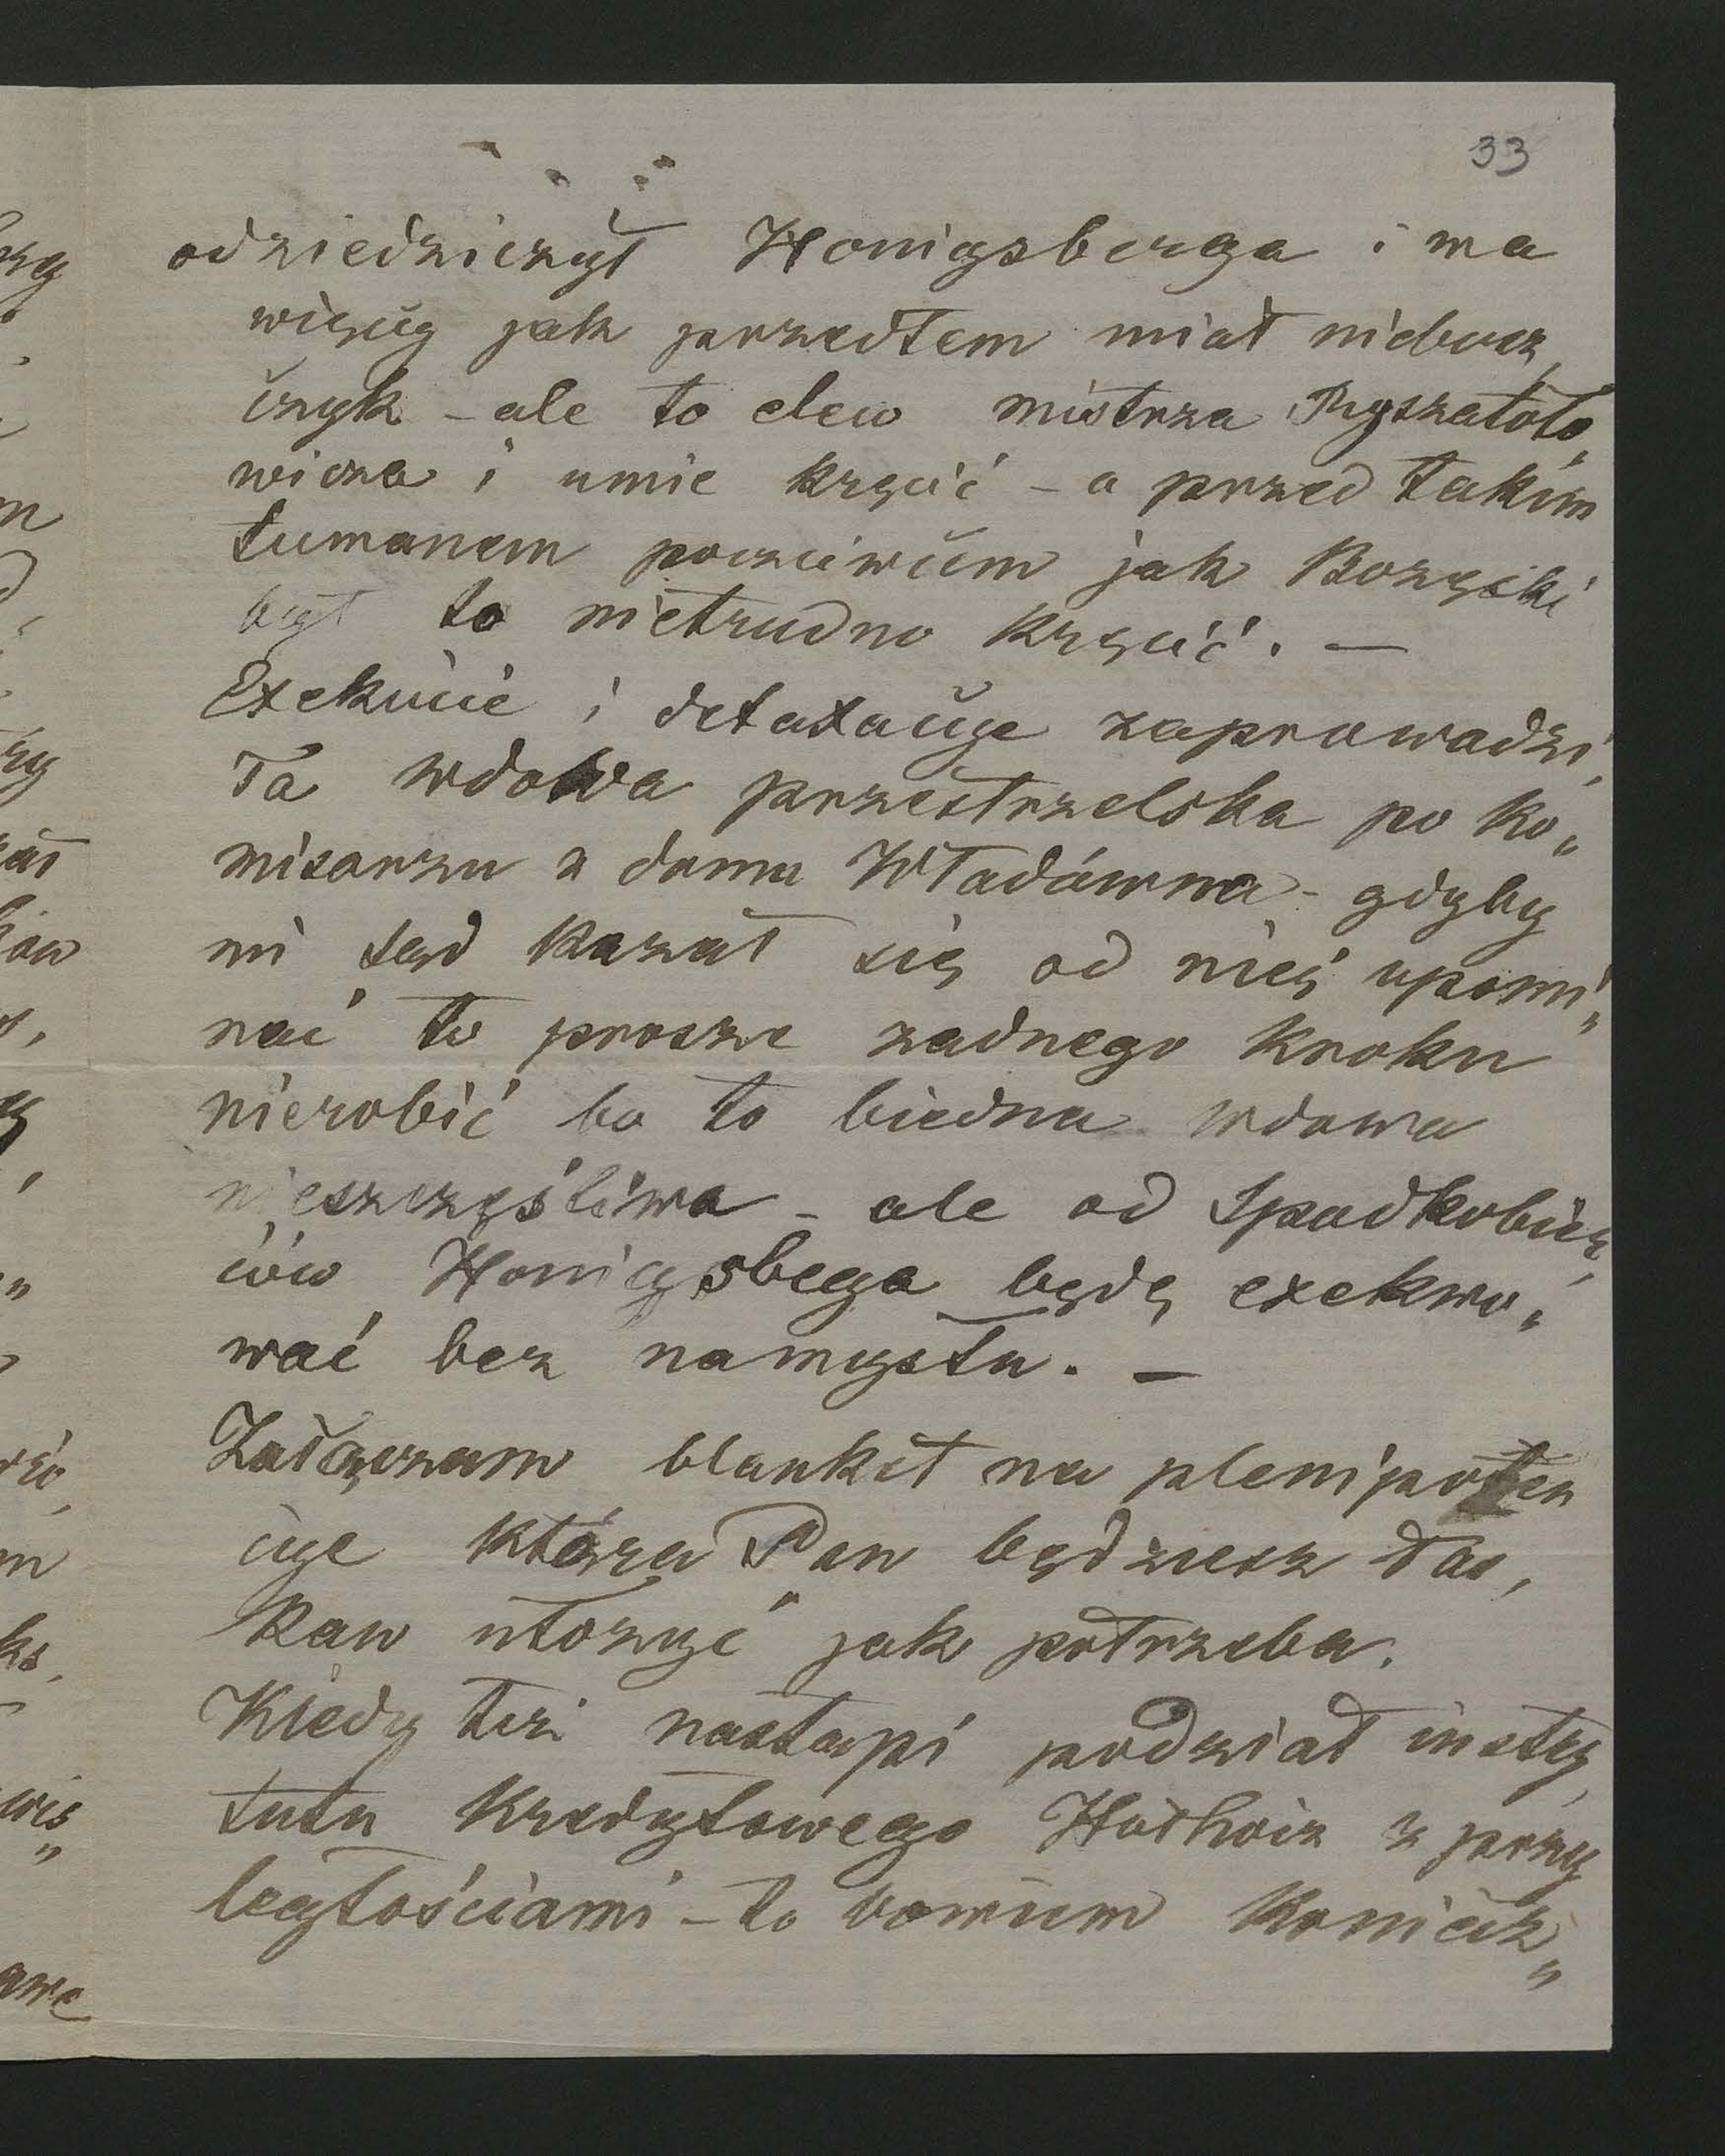 33
odziedziczył Honigsberga i ma
więcy jak przedtem miał niebosz„
czyk – ale to elew mistrza Ryszatoło„
wicza i umie kręcić – a przed takim
tumanem poczciwcem jak Borzęcki
był to nietrudno kręcić. —
Exekucie i detaxacye zaprowadzi„
Ta wdowa przestrzelska po ko„
misarzu z domu Władówna – gdyby
mi sąd kazał się od nięj upomi„
nać to prosze zadnego kroku
nierobić bo to biedna wdowa
nieszczęśliwa – ale od Spadkobier„
ców Honigsbega będę exekwo„
wać bez namysłu. —
Załączam blankiet na plenipoten
cye którą Pan będziesz łas„
kaw ułozyć jak potrzeba.
Kiedy tezi nastąpi podział insty„
tutu kredytowego z przy
ległościami – to koniecz„